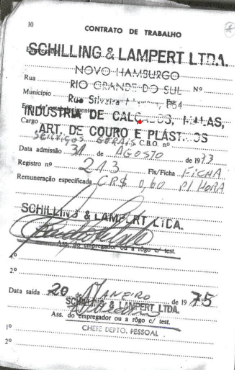 30 CONTRATO DE TRABALHO
SCHILLING & LAMPERT LTDA.
NOVO HAMBURGO
Rua Nº
RIO GRANDE DO SUL
Município
Rua Silveira 754
INDÚSTRIA DE CALÇADOS, MALAS,
Cargo
ART. DE COURO E PLÁSTICOS
SERVIÇOS GERAIS C.B.O. nº
Data admissão 31 de AGOSTO de 1973
Registro nº 213 Fls/Ficha FICHA
Remuneração especificada CR$ 0,60 P/ HORA
SCHILLING & LAMPERT LTDA.
Ass. do empregador ou a rôgo c/ test.
1º
2º
Data saída 20 JANEIRO de 1975
SCHILLING & LAMPERT LTDA.
Ass. do empregador ou a rôgo c/ test.
1º CHEFE DEPTO. PESSOAL
2º